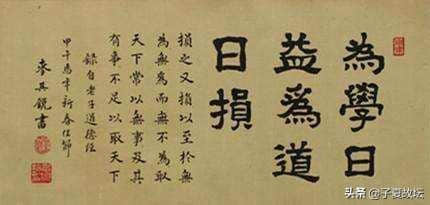 為學日
益為道
日損
損之又損以至於無
為無為而無不為取
天下常以無事及其
有事不足以取天下
錄自老子道德經
甲午馬年新春佳節
麥具銳書
头条 @子夏故坛